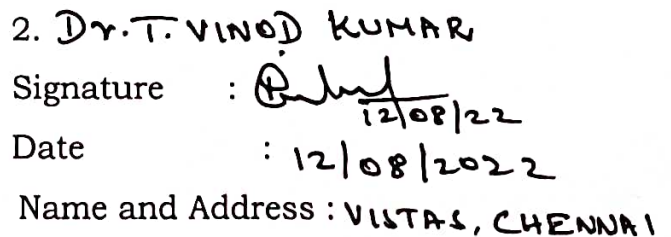 2. Dr. T. VINOD KUMAR
Signature :
12/08/22
Date : 12/08/2022
Name and Address : VISTAS, CHENNAI